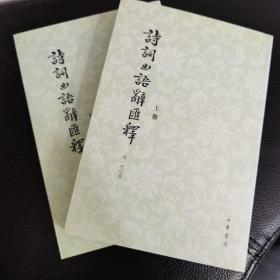 詩詞曲語辭匯釋
上冊
張相著
中華書局
詩詞曲語辭匯釋